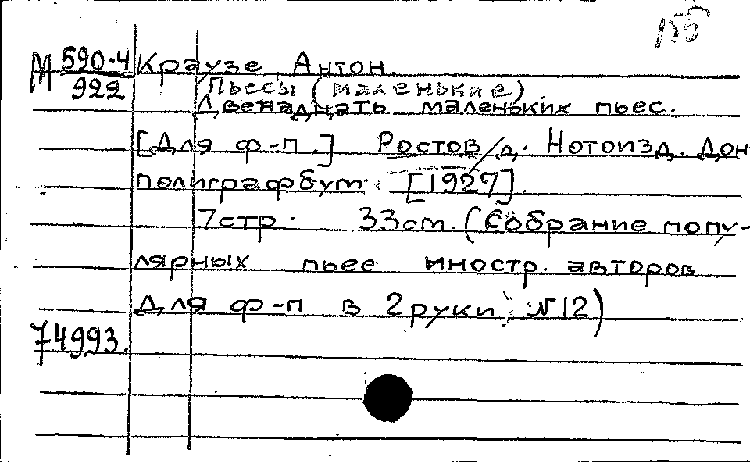 М 590-4
922
Краузе Антон
Пьесы (маленькие)
Двенадцать маленьких пьес.
[Для ф-п.] Ростов/д. Нотоизд. Дон
полиграфбум [1927].
7стр. 33см. (Собрание попу-
лярных пьес иностр. авторов
для ф-п в 2 руки, №12)
74993.